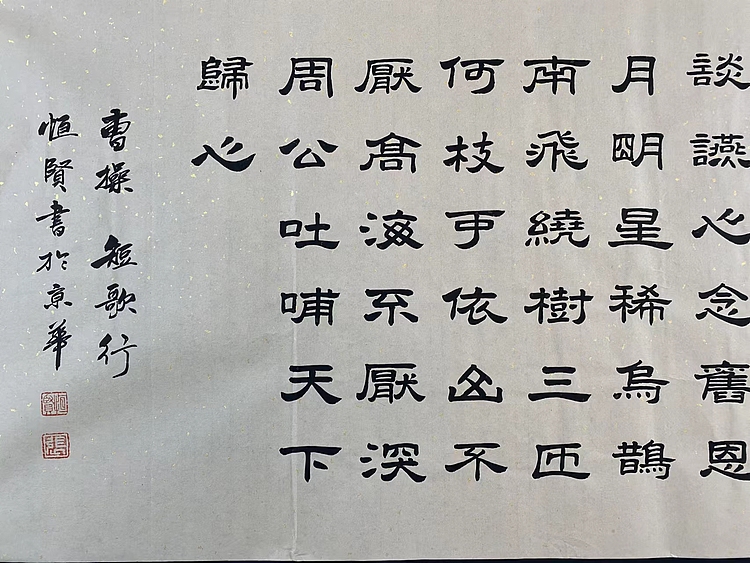 談讌心念舊恩
月明星稀烏鵲
南飛繞樹三匝
何枝可依山不
厭高海不厭深
周公吐哺天下
歸心
曹操 短歌行
恒賢書於京華